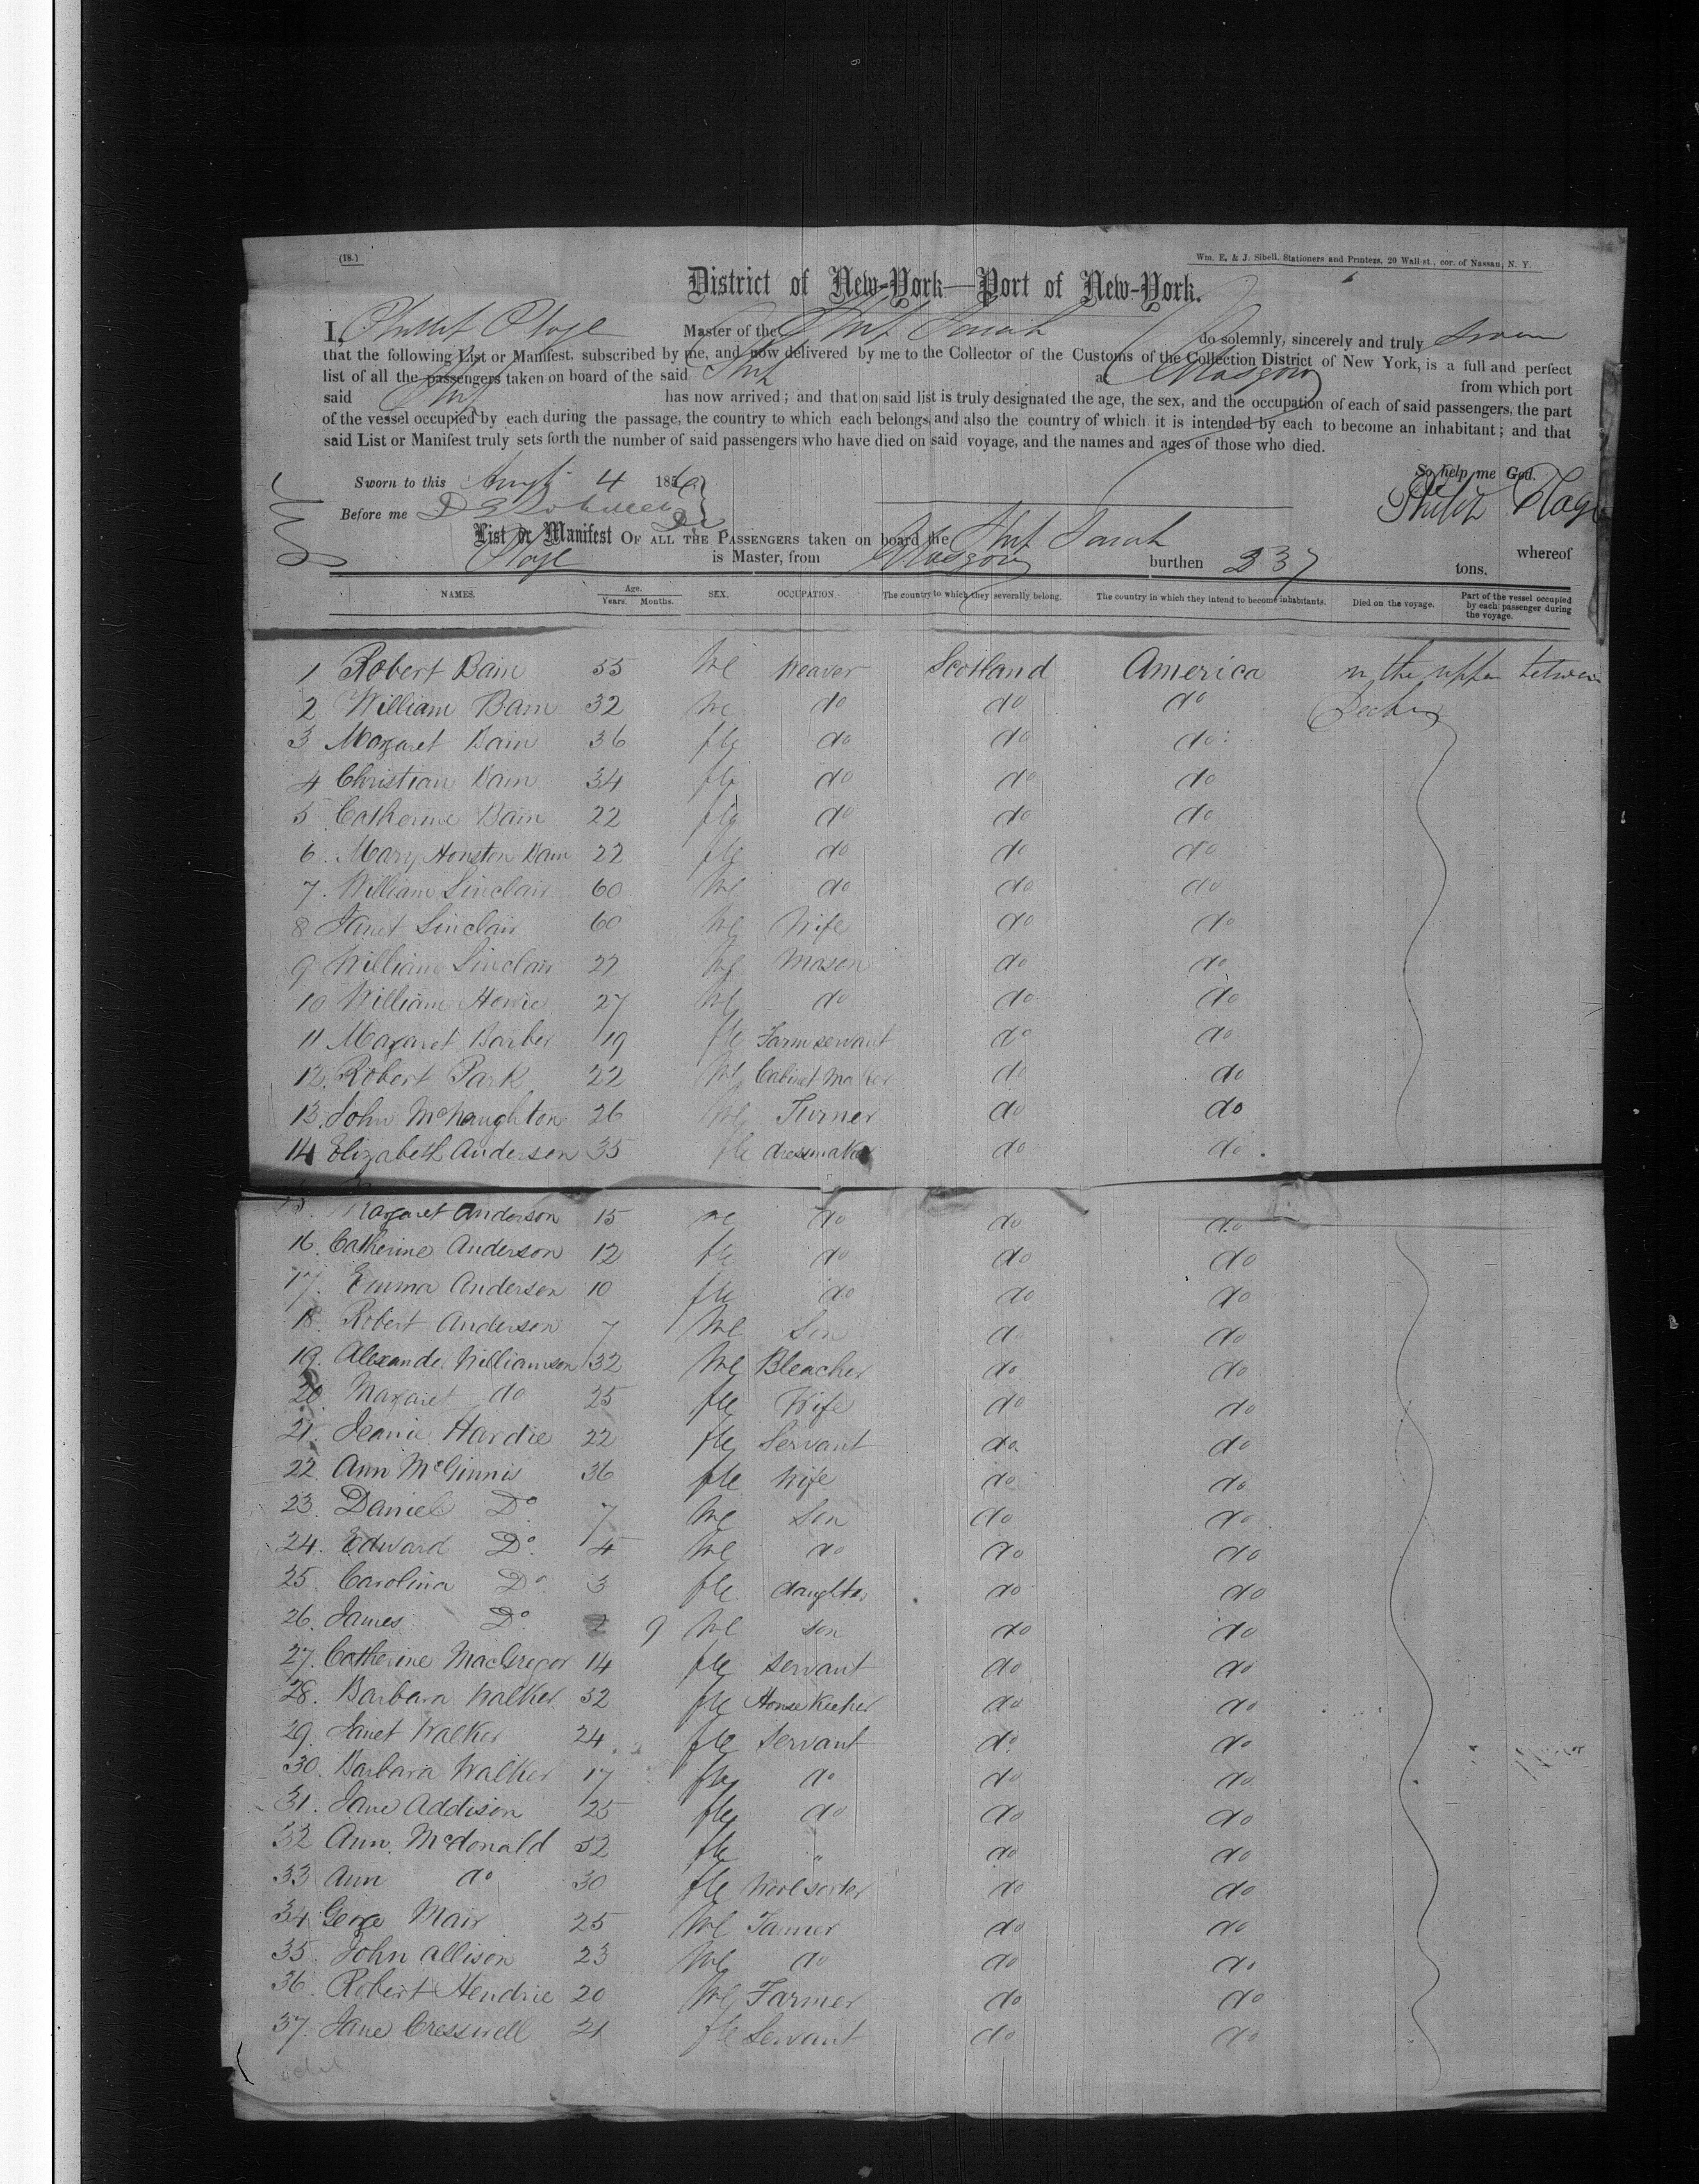 (18.)
Wm. E. & J. Sibell, Stationers and Printers, 20 Wall-st., cor. of Nassau, N. Y.
District of New-York—Port of New-York.
I, Master of the do solemnly, sincerely and truly
that the following List or Manifest, subscribed by me, and now delivered by me to the Collector of the Customs of the Collection District of New York, is a full and perfect
list of all the passengers taken on board of the said at Glasgow from which port
said has now arrived; and that on said list is truly designated the age, the sex, and the occupation of each of said passengers, the part
of the vessel occupied by each during the passage, the country to which each belongs, and also the country of which it is intended by each to become an inhabitant; and that
said List or Manifest truly sets forth the number of said passengers who have died on said voyage, and the names and ages of those who died.
So help me God.
Sworn to this 4 185
Before me
List or Manifest OF ALL THE PASSENGERS taken on board the whereof
is Master, from Glasgow burthen 337 tons.
NAMES. Age. Years. Months. SEX. OCCUPATION. The country to which they severally belong. The country in which they intend to become inhabitants. Died on the voyage. Part of the vessel occupied by each passenger during the voyage.
1 Robert Bain 55 Me Weaver Scotland America in the upper between
2 William Bain 32 Me do do do Decks
3 Margaret Bain 36 fle do do do
4 Christian Bain 34 fle do do do
5 Catherine Bain 22 fle do do do
6. Mary Houston Bain 22 fle do do do
7. William Sinclair 60 Me do do do
8 Janet Sinclair 60 Me Wife do do
9 William Sinclair 27 Me Mason do do
10 William Howie 27 Me do do do
11 Margaret Barber 19 fle Farm servant do do
12. Robert Park 22 Me Cabinet Maker do do
13. John McNaughton 26 Me Turner do do
14 Elizabeth Anderson 35 fle dressmaker do do
15. Margaret Anderson 15 do do do
16. Catherine Anderson 12 fle do do do
17. Emma Anderson 10 fle do do do
18. Robert Anderson 7 Me Son do do
19. Alexander Williamson 32 Me Bleacher do do
20. Margaret do 25 fle Wife do do
21. Jeanie Hardie 22 fle Servant do do
22. Ann McGinnis 36 fle Wife do do
23. Daniel Do 7 Me Son do do
24. Edward Do. 4 Me do do do
25. Carolina Do 3 fle daughter do do
26. James Do. 9 Me son do do
27. Catherine MacGregor 14 fle servant do do
28. Barbara Walker 52 fle House Keeper do do
29. Janet Walker 24 fle Servant do do
30. Barbara Walker 17 fle do do do
31. Jane Addison 25 fle do do do
32 Ann McDonald 52 fle " do do
33 Ann do 30 fle Woolsorter do do
34 George Mair 25 Me Tanner do do
35. John Allison 23 Me do do do
36. Robert Hendrie 20 Me Farmer do do
37. Jane Cresswell 21 fle Servant do do